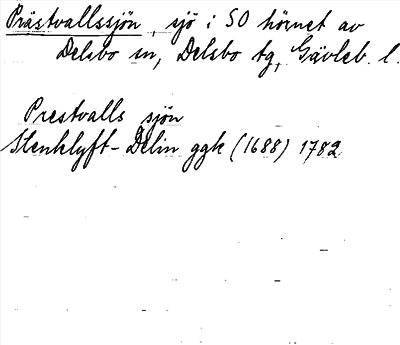 Prästvallssjön, sjö i SO hörnet av
Delsbo sn, Delsbo tg, Gävleb. l.
Prestvalls sjön
Stenklyft-Delin ggk (1688) 1782